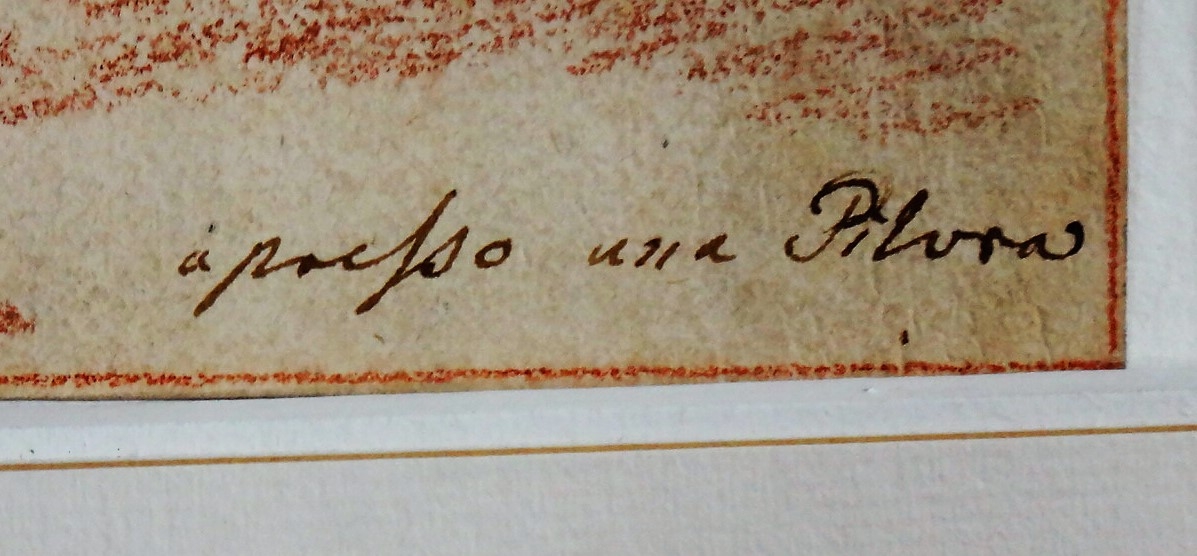 àpresso una Pitura